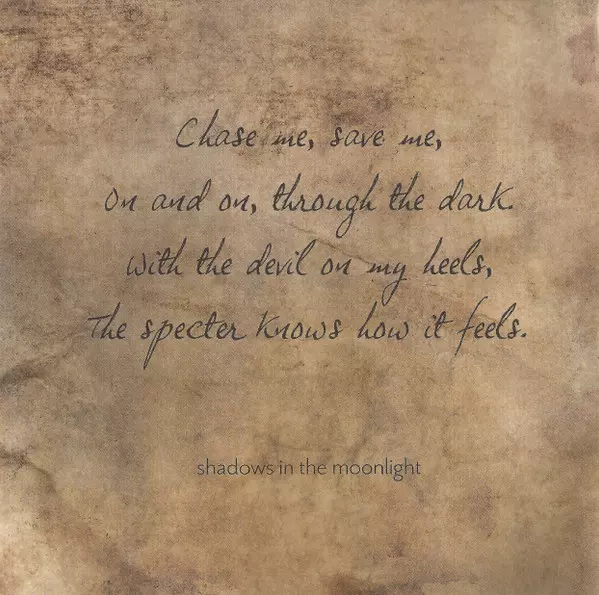 Chase me, save me,
On and on, through the dark.
With the devil on my heels,
The specter knows how it feels.
shadows in the moonlight